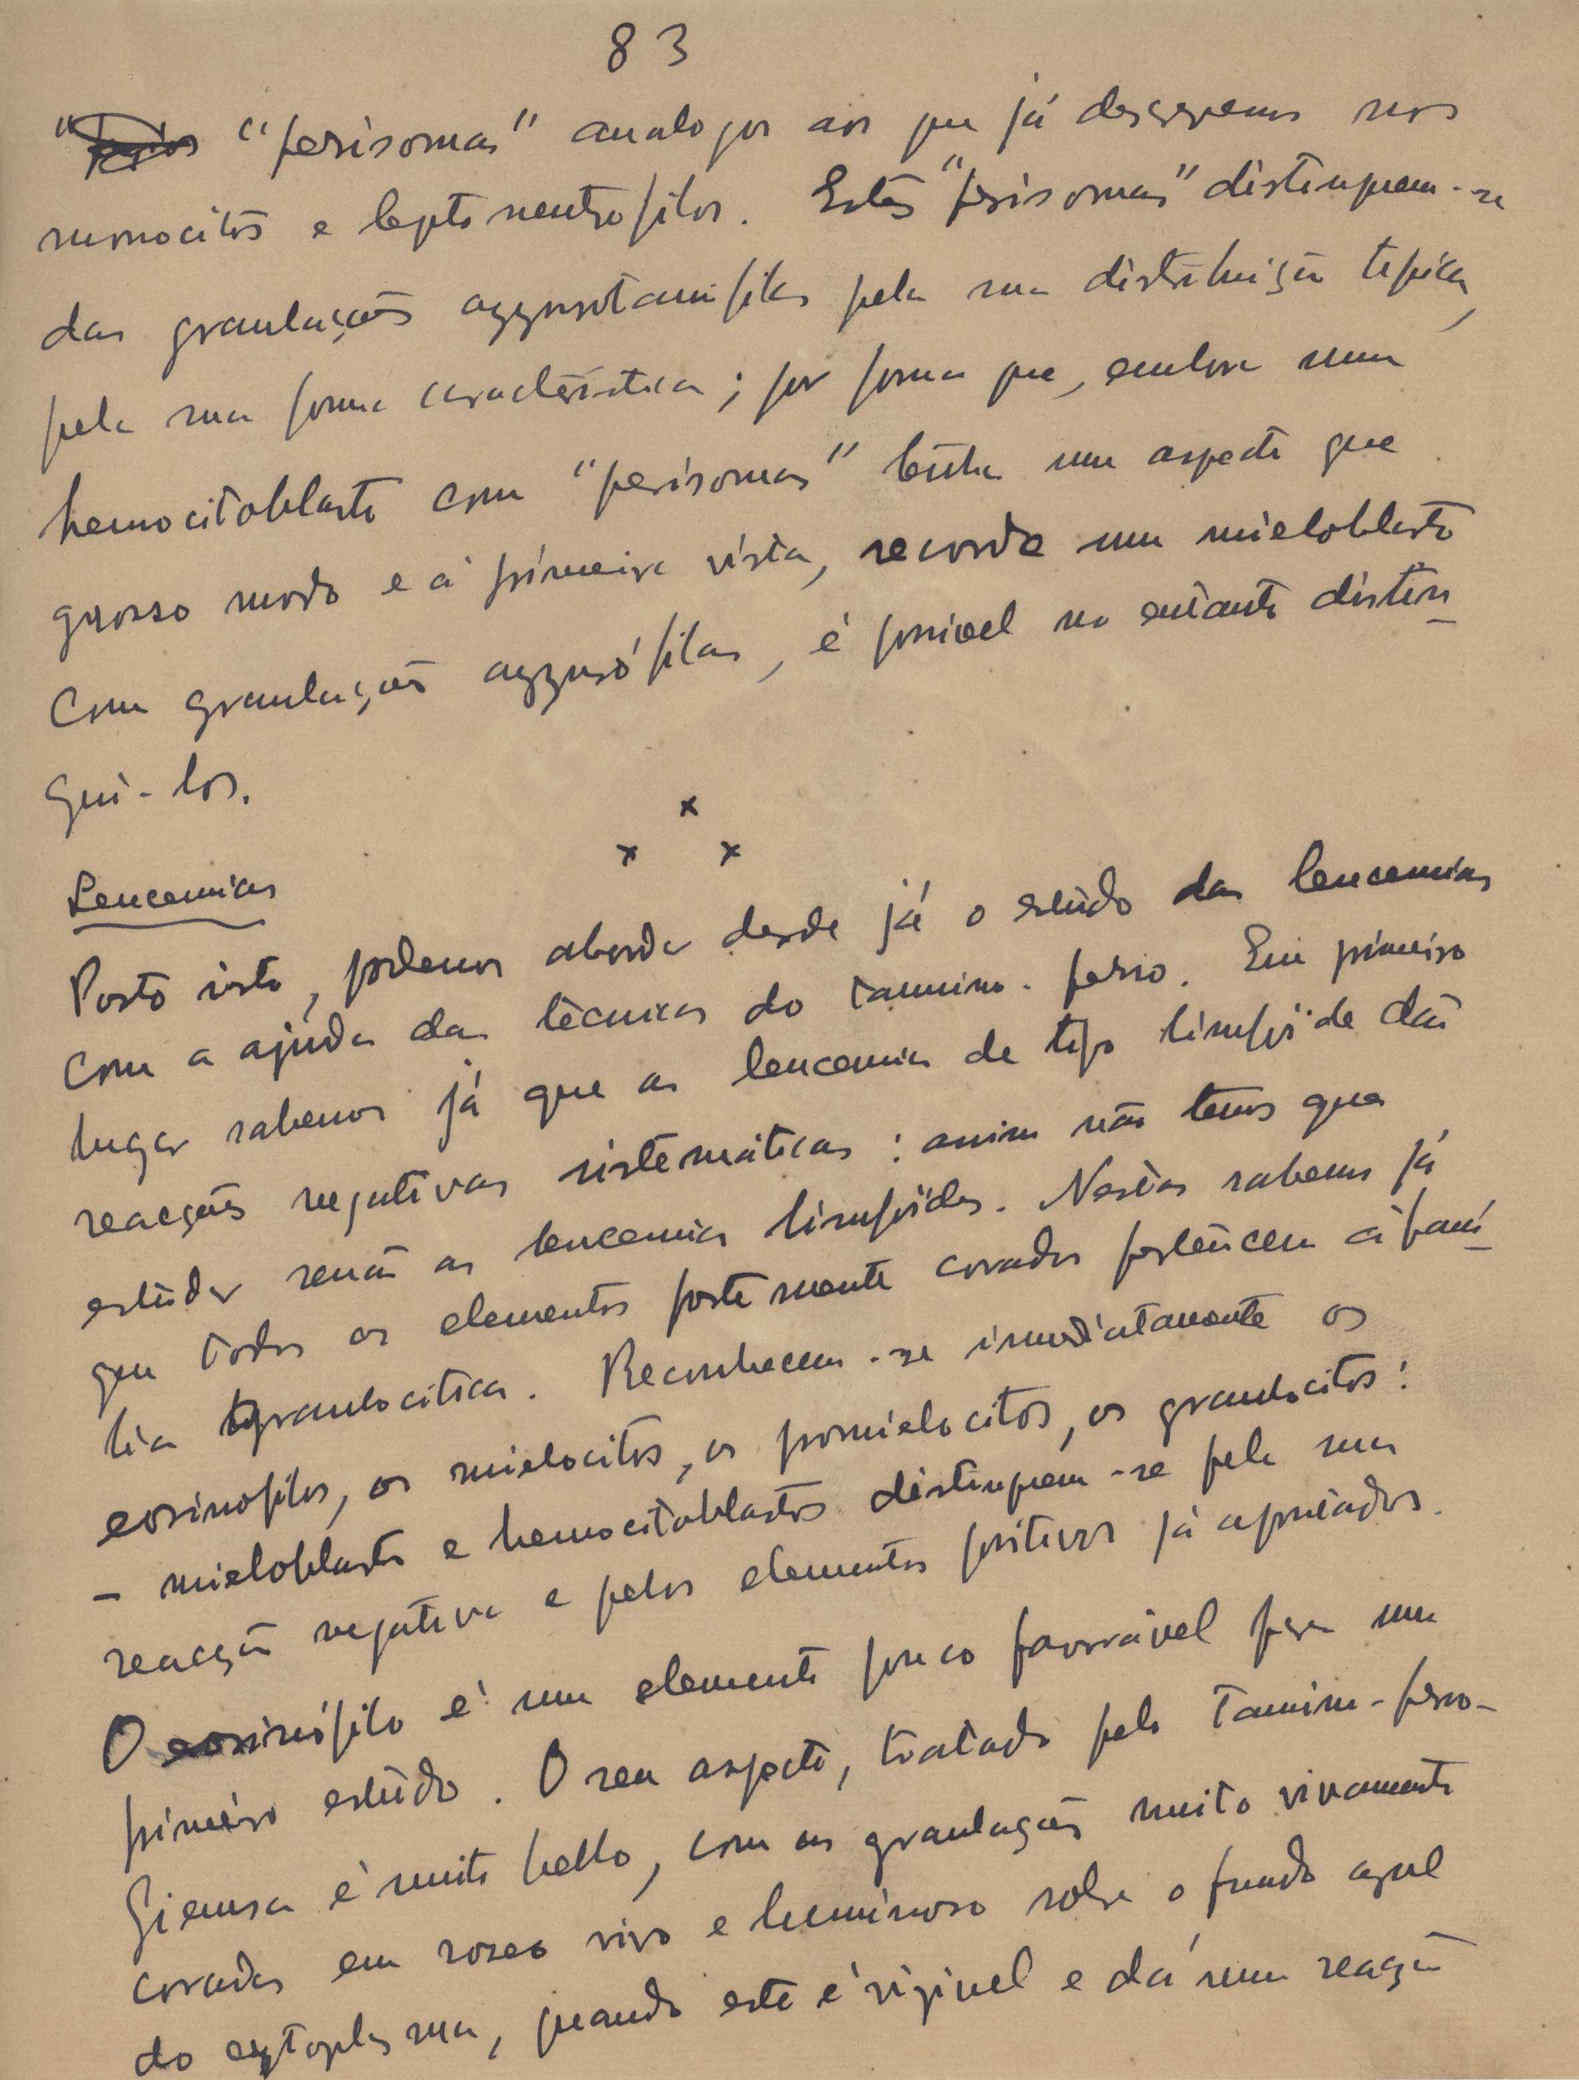 83
"perisomas" analogos aos que já descrevemos nos
monocitos e leptoneutrofilos. Estes "perisomas" distinguem-se
das granulações azzurotanifilas pela sua distribuição tipica,
pela sua forma caracteristica; por forma que, embora um
hemocitoblasto com "perisomas" tenha um aspecto que
grosso modo e á primeira vista, recorda um mieloblasto
com granulações azzurófilas, é possivel no entanto distin-
gui-los.
x
x x
Leucemias
Posto isto, podemos abordar desde já o estudo das leucemias
com a ajuda das técnicas do tannino-ferro. Em primeiro
lugar sabemos já que as leucemias de tipo limfóide dão
reacções negativas sistemáticas: assim não temos que
estudar senão as leucemias limfóides. Nestas sabemos já
que todos os elementos fortemente corados pertencem á fami-
lia granulocitica. Reconhecem-se imediatamente os
eosinofilos, os mielocitos, os promielocitos, os granulocitos:
- mieloblastos e hemocitoblastos distinguem-se pela sua
reacção negativa e pelos elementos positivos já apontados.
O eosinófilo é um elemento pouco favoravel para um
primeiro estudo. O seu aspecto, tratado pelo Tannino-ferro-
Giemsa é muito bello, com as granulações muito vivamente
coradas em roseo vivo e luminoso sobre o fundo azul
do cytoplasma, quando este é visivel e dá uma reacção